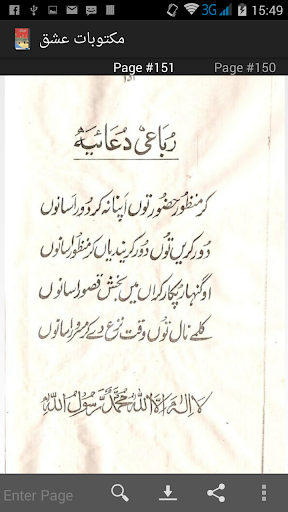 15:49
3G
مکتوبات عشق
Page #151
Page #150
151
رباعی دُعائیہ
کر منظور حضور توں اپنا نہ کر دور اسانوں
دُور کریں توں دُور کریندیاں کر منظور اسانوں
اوگنہار پکار کراں میں بخش قصور اسانوں
کلمے نال توں وقت نزع دے کر مسرور اسانوں
لا الہ الا اللہ محمد رسول اللہ
Enter Page